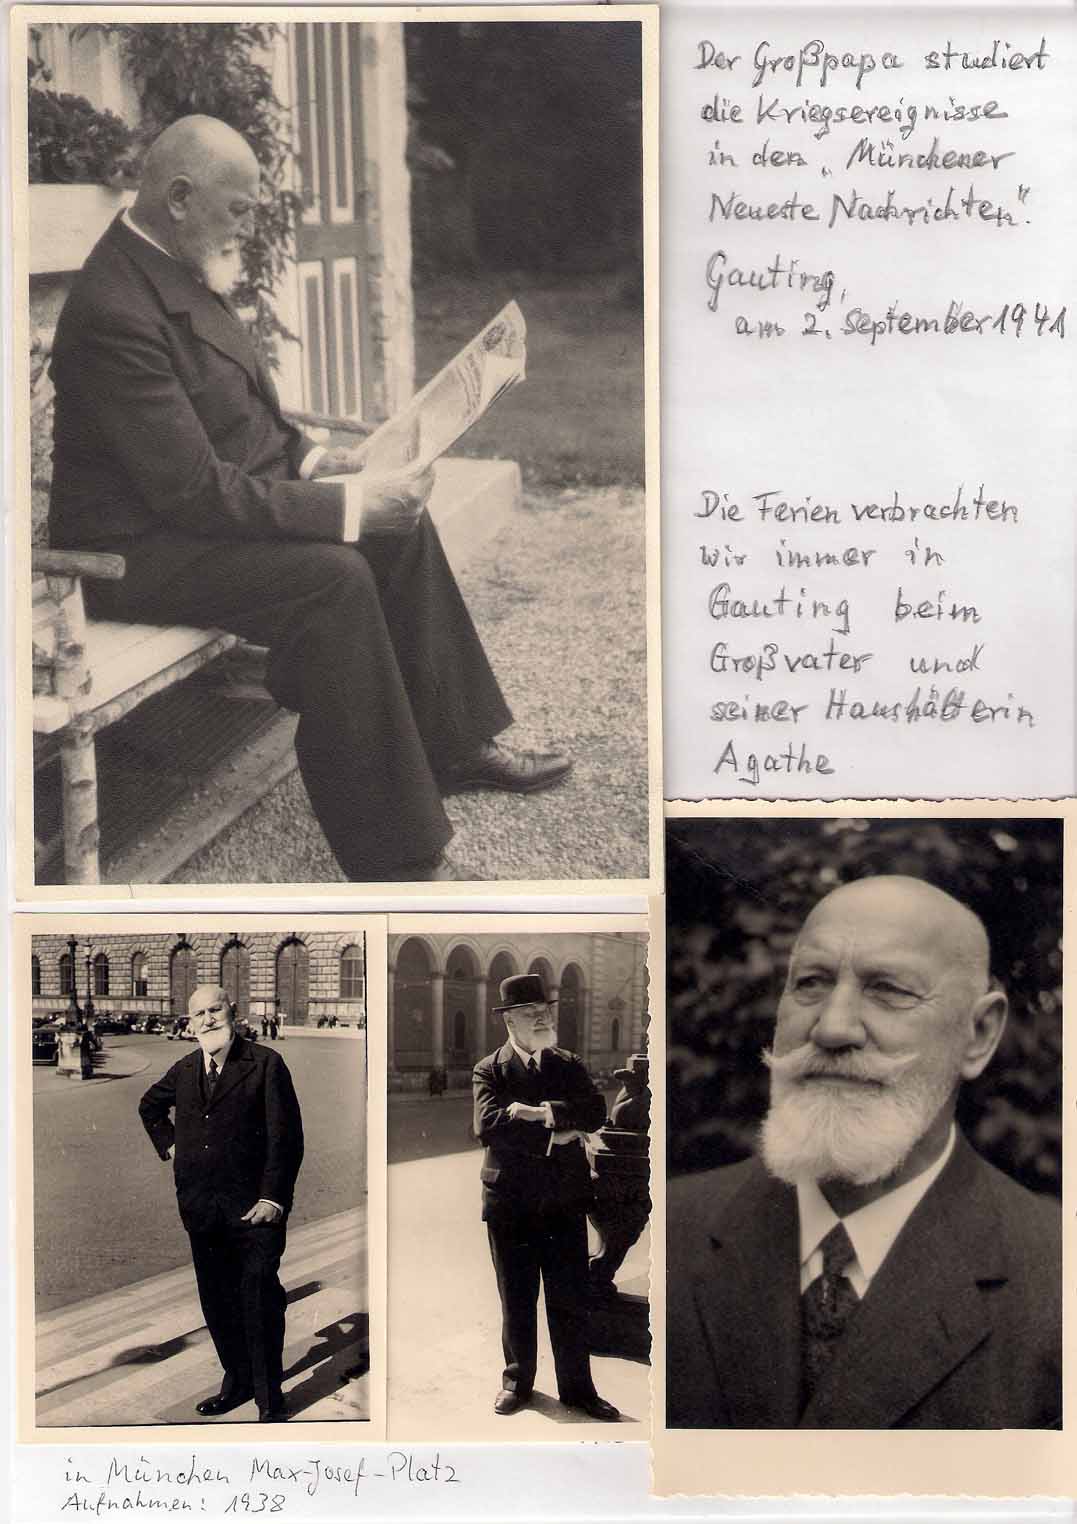 Der Großpapa studiert
die Kriegsereignisse
in den „Münchener
Neueste Nachrichten".
Gauting,
am 2. September 1941
Die Ferien verbrachten
wir immer in
Gauting beim
Großvater und
seiner Haushälterin
Agathe
in München Max-Josef-Platz
Aufnahmen: 1938